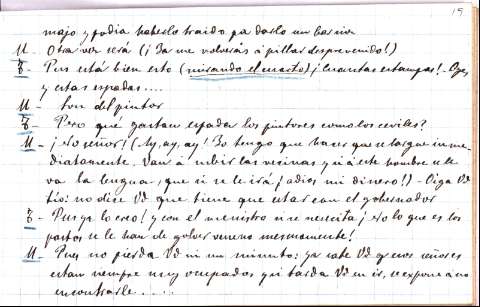 15
majo y podia haberlo traido pa darlo un barniz
M - Otra vez será (¡Ya me volverás á pillar desprevenido!)
Z - Pus está bien esto (mirando el cuarto) ¡Cuantas estampas! - Oye,
y estas espadas....
M - Son del pintor
Z - Pero qué gastan espadas los pintores como los civiles?
M - ¡No señor! (¡Ay, ay, ay! Yo tengo que hacer que se largue inme-
diatamente. Van á subir las vecinas y si á este hombre se le
va la lengua, que si se le irá ¡adios mi dinero!) - Oiga Vd
tio: no dice Vd que tiene que estar con el gobernador
Z - Pus ya lo creo! y con el menistro si se necesita; no lo que es los
pastos se le han de golver veneno mesmamente!
M - Pues no pierda Vd ni un minuto: ya sabe Vd que esos señores
estan siempre muy ocupados y si tarda Vd en ir, se expone a no
encontrarle.....